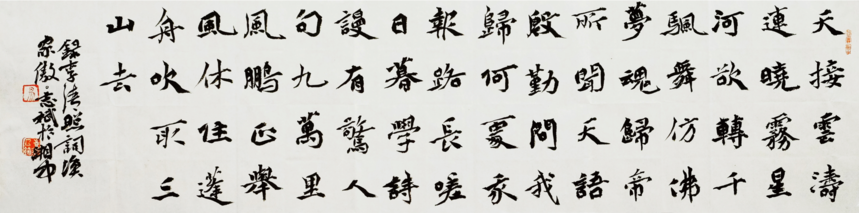 天接雲濤
連曉霧星
河欲轉千
颿舞仿佛
夢魂歸帝
所聞天語
殷勤問我
歸何處我
報路長嗟
日暮學詩
謾有驚人
句九萬里
風鵬正舉
風休住蓬
舟吹取三
山去
錄李清照詞漁
家傲